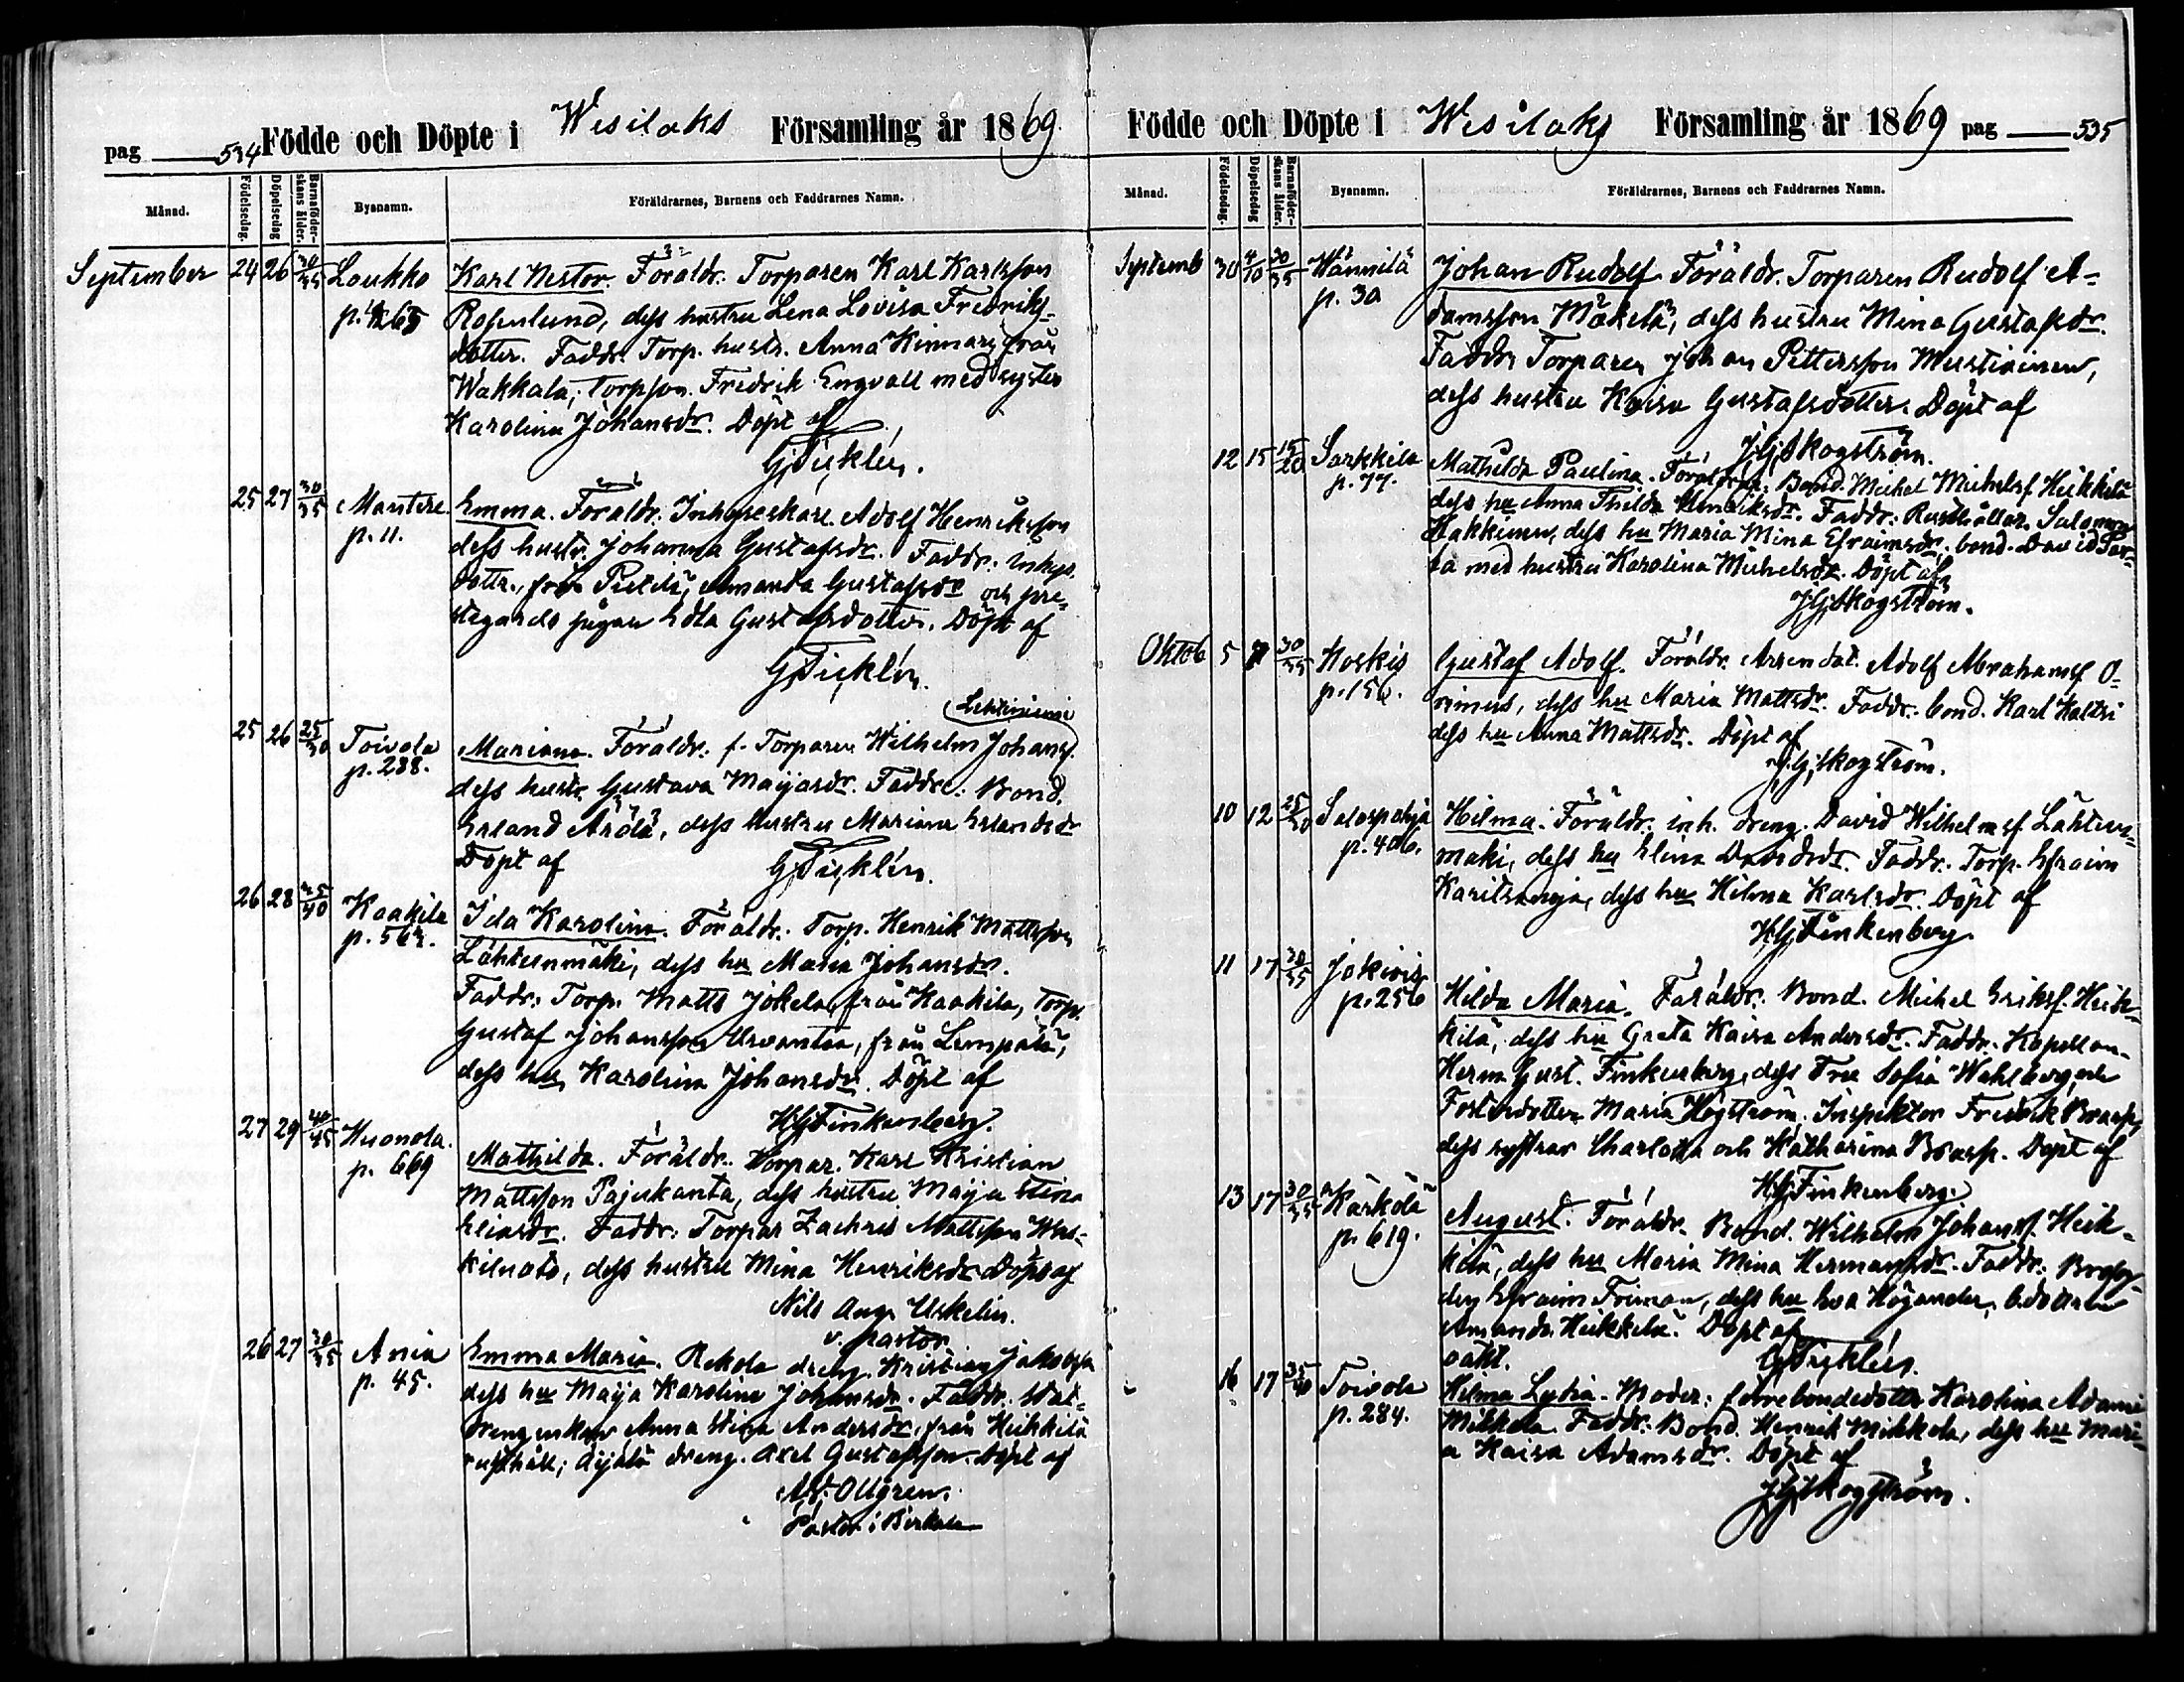 pag 534 Födde och Döpte i Wesilaks Församling år 1869
Månad. Födelsedag. Döpelsedag Barnaföderskans ålder. Byanamn. Föräldrarnes, Barnens och Faddrarnes Namn.
September 24 26 30/35 Laukko Karl Nestor. Föräldr. Torparen Karl Karlsson
p. 65 Rosenlund, dess hustru Lena Lovisa Fredriks-
dotter. Faddr. Torp. hustr. Anna Kinnari från
Wakkala, Torpson Fredrik Engvall med syster
Karolina Johansdr. Döpt af
G. Ticklén.
25 27 30/35 Mantere Emma. Föräldr. Inhyseskarl Adolf Henriksson
p. 11. dess hustr. Johanna Gustafsdr. Faddr. inhys.
dottr. från Pietilä, Amanda Gustafsdr och pre-
stegårds pigan Edla Gustafsdotter. Döpt af
G. Ticklén.
Lehtiniemi
25 26 25/30 Toivola Mariana. Föräldr. f. Torparen Wilhelm Johansf.
p. 288. dess hustr. Gustava Maijasdr. Faddr: Bond.
Erland Arölä, dess hustru Mariana Erlandsdr
Döpt af G. Ticklén.
26 28 35/40 Kaakila Ida Karolina. Föräldr. Torp. Henrik Mattsson
p. 567. Lähteenmäki, dess hu Maria Johansdr.
Faddr. Torp. Matts Jokela, från Kaakila, Torp.
Gustaf Johansson Urvantaa, från Lempälä,
dess hu Karolina Johansdr. Döpt af
HGFinkenberg.
27 29 40/45 Huonola. Mathilda. Föräldr. Torpar. Karl Kristian
p. 669 Mattsson Pajukanta, dess hustru Maija Stina
Eliasdr. Faddr: Torpar Zachris Mattsson Wes-
kiluoto, dess hustru Mina Henriksdr Döpt af
Nils Aug. Uskelin.
v. pastor.
26 27 30/35 Ania Emma Maria. Rekola dreng. Kristian Jakobsson
p. 45. dess hu Maija Karolina Johansdr. Faddr. Stat-
drengenkan Anna Stina Andersdr, från Heikkilä
rusthåll; Äijälä dreng. Axel Gustafsson. Döpt af
Ad. Ollgren.
Pastor i Birkala
Födde och Döpte i Wesilaks Församling år 1869 pag 535
Månad. Födelsedag. Döpelsedag Barnaföderskans ålder. Byanamn. Föräldrarnes, Barnens och Faddrarnes Namn.
Septemb 30 4/10 30/35 Wännilä Johan Rudolf Föräldr. Torparen Rudolf A-
p. 30 damsson Mäkelä, dess hustru Mina Gustafsdr.
Faddr. Torparen Johan Pettersson Mustiainen,
dess hustru Kaisa Gustafsdotter. Döpt af
JGSkogström.
12 15 15/20 Sarkkila Mathilda Paulina. Föräldrar: Bond. Michel Michelsf Heikkilä
p. 77. dess hu Anna Thilda Henriksdr. Faddr: Rusthållar. Salomon
Hakkinen, dess hu Maria Mina Efraimsdr, bond. David
ta med hustru Karolina Michelsdr. Döpt af
JGSkogström.
Oktob 5 7 30/35 Koskis Gustaf Adolf. Föräldr. Arrendat. Adolf Abrahamsf O-
p. 156. rimus, dess hu Maria Mattsdr. Faddr: bond. Karl Kaltsi
dess hu Anna Mattsdr. Döpt af
J.G. Skogström.
10 12 25/30 Salospohja Hilma. Föräldr. inh. dreng. David Wilhelmsf. Lähteen-
p. 406. mäki, dess hu Elina Davidsdr. Faddr. Torp. Efraim
Karitsanoja, dess hu Hilma Karlsdr. Döpt af
HGFinkenberg
11 17 30/35 Jokiois Hilda Maria. Föräldr. Bond. Michel Eriksf. Heik-
p. 256 kilä, dess hu Greta Kaisa Andersdr. Faddr. Kapellan.
Herm. Gust. Finkenberg, dess Fru Sofia Wahlberg, och
Fosterdotter Maria Högström, Inspektor Fredrik Braxp,
dess systrar Charlotta och Katharina Braxp. Döpt af
HGFinkenberg.
13 17 30/35 Kärkölä August. Föräldr. Bond. Wilhelm Johansf. Heik-
p. 619. kilä, dess hu Maria Mina Hermansdr. Faddr:
Efraim Friman, dess hu Eva Högander, b.dottern
Amanda Heikkilä. Döpt af
G. Ticklén.
oäkt.
16 17 35/40 Toivola Hilma Lydia. Moder: förre bondedotter Karolina Adami
p. 284. Mikkola Faddr: Bond. Henrik Mikkola, dess hu Mari-
a Kaisa Adamsdr. Döpt af
JGSkogström.